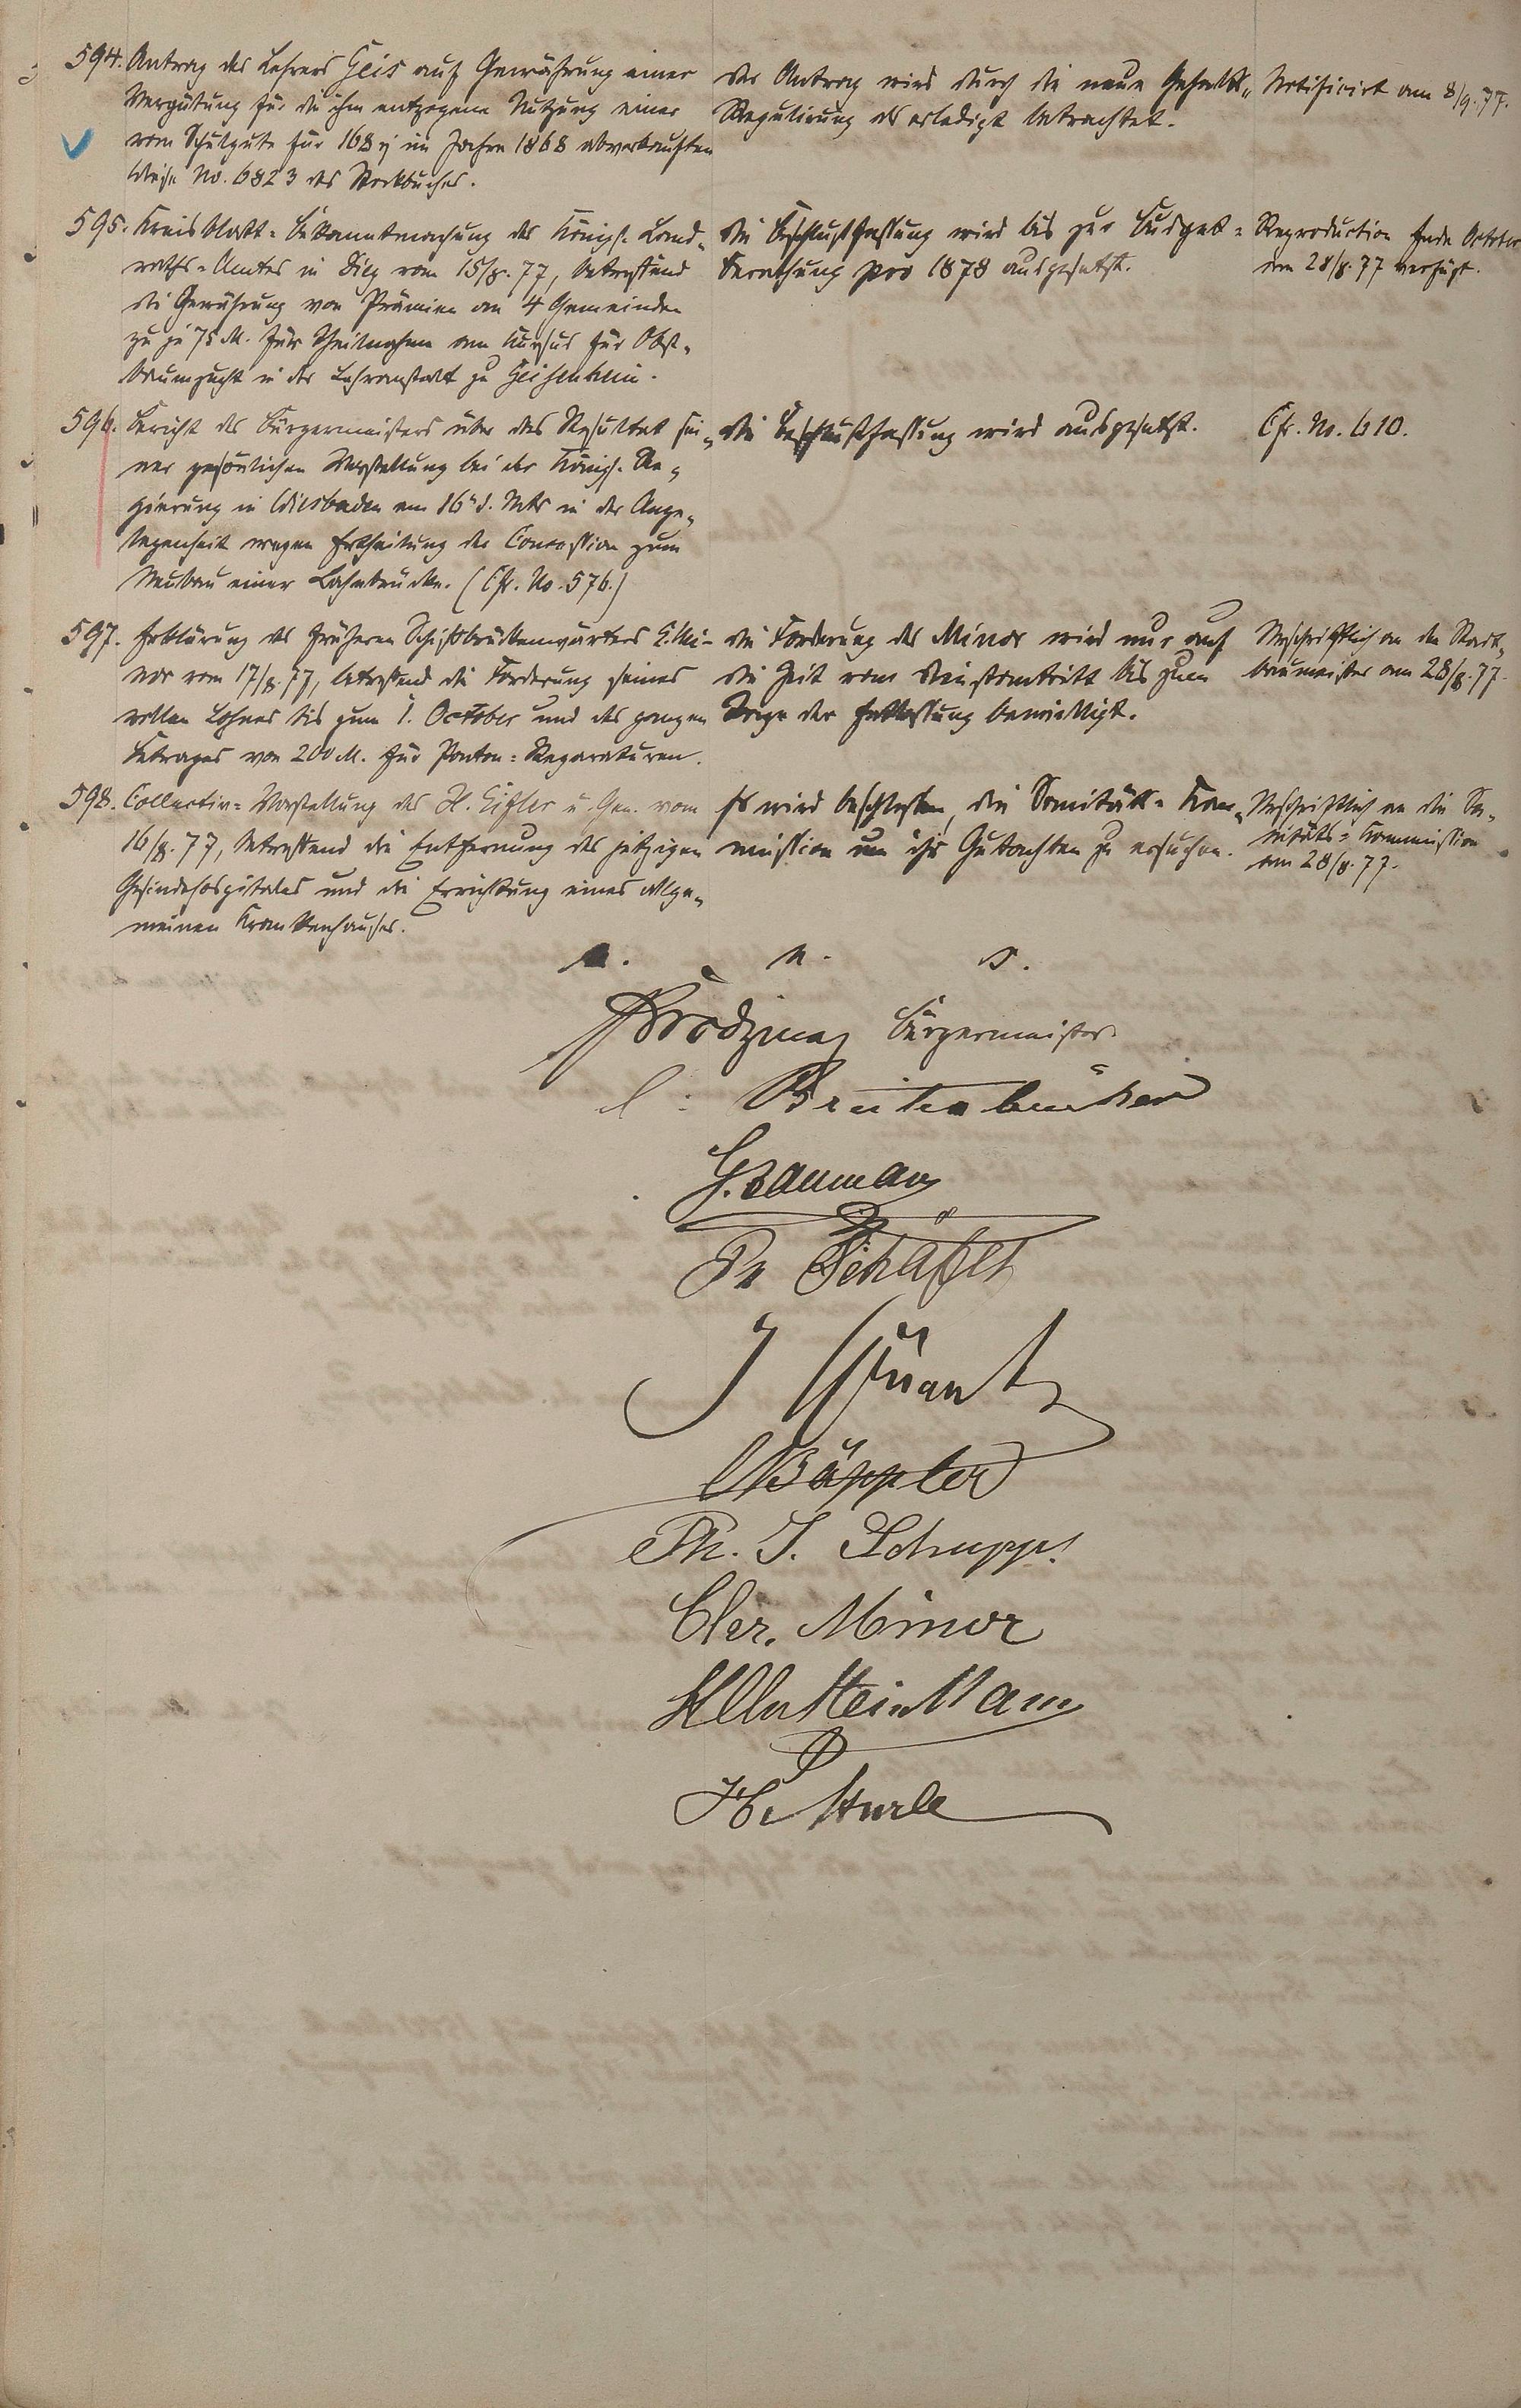 594. Antrag des Lehrers Geis auf Gewährung einer
Vergütung für die ihm entzogene Nutzung einer
vom Schulgute für 168 im Jahre 1868 abverkauften
Wiese No. 6823 des Stockbuches.
Der Antrag wird durch die neue Gehalts-
Regulirung als erledigt betrachtet.
Notificirt am 8/9.77.
595. Kreisblatt-Bekanntmachung des Königl. Land-
raths-Amtes in Diez vom 15/8.77, betreffend
die Gewährung von Prämien an 4 Gemeinden
zu je 75 M. für Theilnahme am Kursus für Obst-
baumzucht in der Lehranstalt zu Geisenheim.
Die Beschlußfassung wird bis zur Budget-
berathung pro 1878 ausgesetzt.
Reproduction Ende October
am 28/8.77 verfügt.
596. Bericht des Bürgermeisters über das Resultat sei-
ner persönlichen Vorstellung bei der Königl. Re-
gierung in Wiesbaden am 16. d. Mts in der Ange-
legenheit wegen Ertheilung der Concession zum
Neubau einer Lahnbrücke. (Cfr. No. 576.)
Die Beschlußfassung wird ausgesetzt.
Cfr. No. 610.
597. Erklärung des früheren Schiffbrückenwärters G. Mi-
nor vom 17/8.77, betreffend die Forderung seines
vollen Lohnes bis zum 1. October und des ganzen
Betrages von 200 M. für Ponton-Reparaturen.
Die Forderung des Minor wird nur auf
die Zeit vom Dienstantritt bis zum
Tage der Entlassung bewilligt.
Abschriftlich an den Stadt-
baumeister am 28/8.77.
598. Collectiv-Vorstellung des H. Eisler u. Gen. vom
16/8.77, betreffend die Entfernung des jetzigen
Gesindehospitales und die Errichtung eines allge-
meinen Krankenhauses.
Es wird beschlossen, die Sanitäts-Kom-
mission um ihr Gutachten zu ersuchen.
Abschriftlich an die Sa-
nitäts-Kommission
am 28/8.77.
a. u. s.
Bürgermeister.
G. Bauman
Schäfer
J Quant
Bäppler
Ph. J. Schupp
Chr. Minor